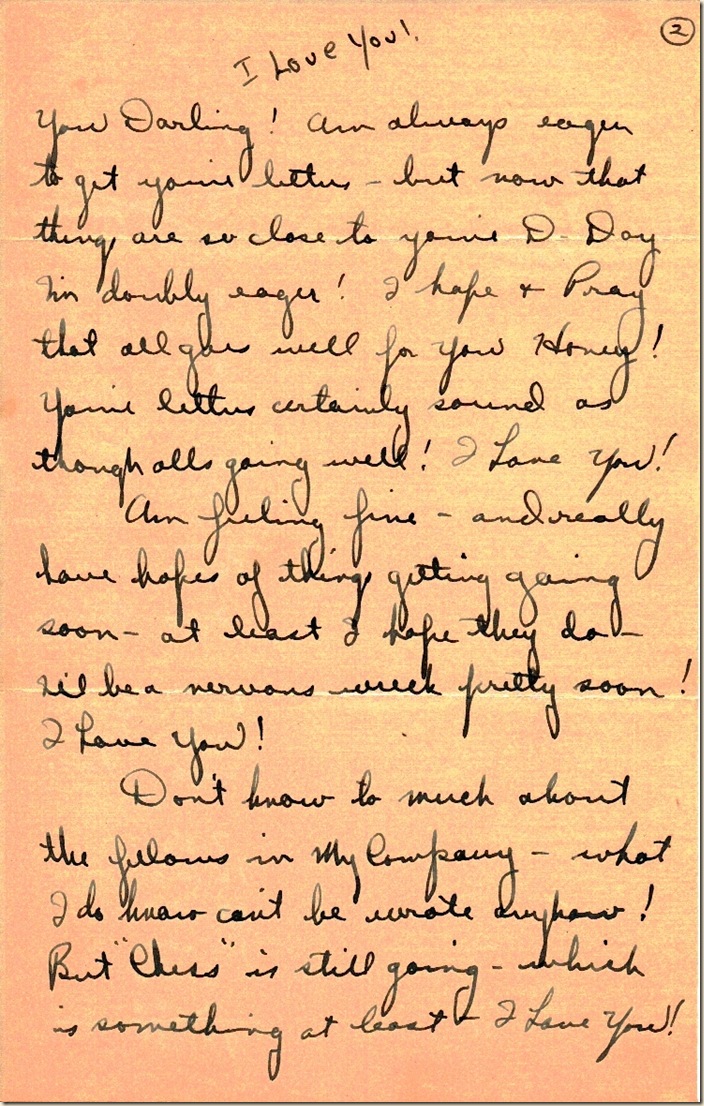 2
I Love You!
You Darling! Am always eager
to get youre letters - but now that
things are so close to youre D-Day
I'm doubly eager! I hope + Pray
that all goes well for You Honey!
Youre letters certainly sound as
though alls going well! I Love You!
Am feeling fine - and really
have hopes of things getting going
soon - at least I hope they do -
I'll be a nervous wreck pretty soon!
I Love You!
Don't know to much about
the felows in My Company - what
I do know can't be wrote anyhow!
But "Chess" is still going - which
is something at least - I Love You!